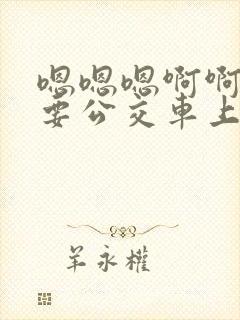 嗯嗯嗯啊啊
要公交車上
羊永權